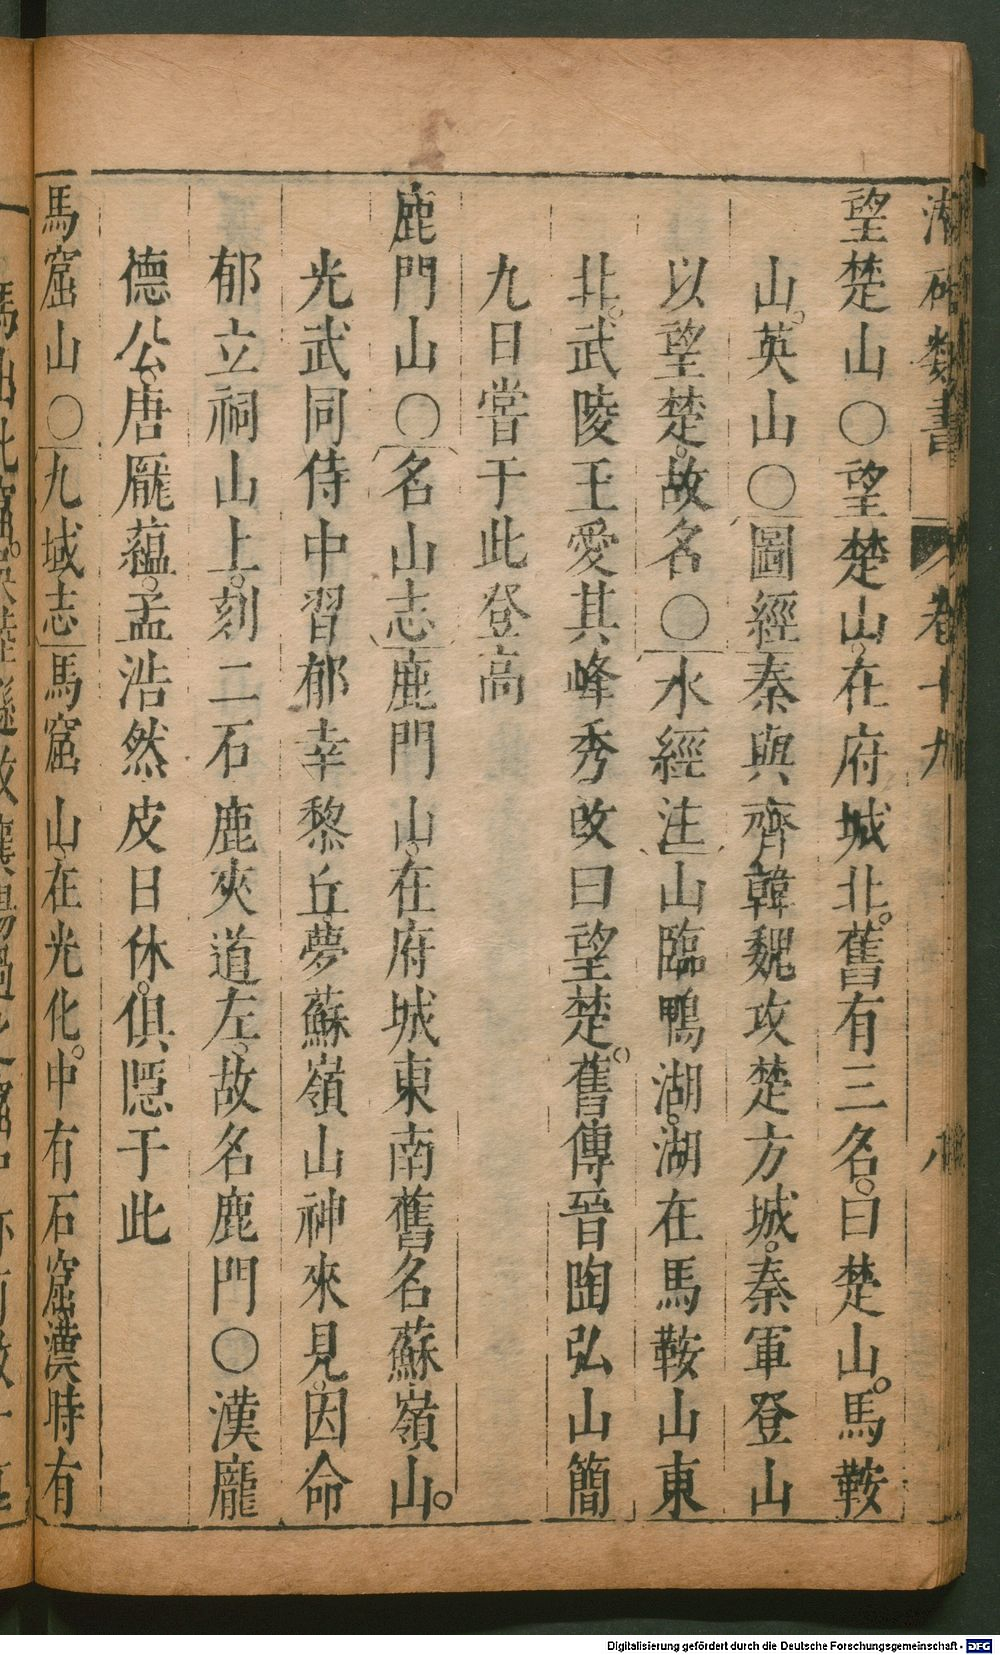 書 卷十九 八
望楚山○望楚山。在府城北。舊有三名。曰楚山。馬鞍
山。英山○圖經秦與齊韓魏攻楚方城。秦軍登山
以望楚。故名○水經注山臨鴨湖。湖在馬鞍山東
北。武陵王愛其峰秀改曰望楚。舊傳晉陶弘山簡
九日嘗于此登高
鹿門山○名山志鹿門山。在府城東南舊名蘇嶺山。
光武同侍中習郁幸黎丘。夢蘇嶺山神來見。因命
郁立祠山上。刻二石鹿夾道左。故名鹿門○漢龐
德公。唐龐蘊。孟浩然皮日休。俱隱于此
馬窟山○九域志馬窟山。在光化。中有石窟。漢時有
Digitalisierung gefördert durch die Deutsche Forschungsgemeinschaft - DFG